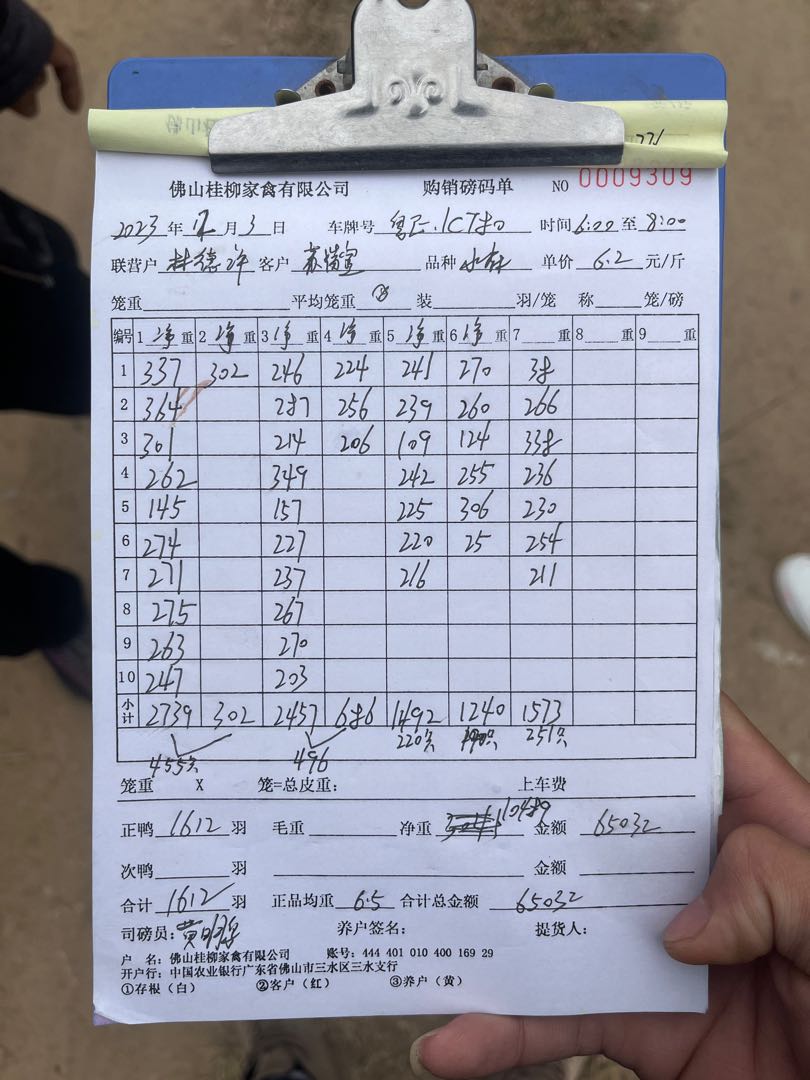 佛山桂柳家禽有限公司 购销磅码单 NO 0009309
2023年12月3日 车牌号 时间6:00至8:00
联营户 林德许 客户 品种 单价 6.2 元/斤
笼重 平均笼重 装 羽/笼 称 笼/磅
编号 1 净 重 2 净 重 3 净 重 4 净 重 5 净 重 6 净 重 7 重 8 重 9 重
1 337 302 246 224 241 270 38
2 364 287 256 239 260 266
3 301 214 206 109 124 338
4 262 349 242 255 236
5 145 157 225 306 230
6 274 227 220 25 254
7 271 237 216 211
8 275 267
9 263 270
10 247 203
小计 2739 302 2457 686 1492 1240 1573
455只 496 220只 190只 251只
笼重 X 笼=总皮重: 上车费
正鸭 1612 羽 毛重 净重 10489 金额 65032
次鸭 羽 金额
合计 1612 羽 正品均重 6.5 合计总金额 65032
司磅员: 养户签名: 提货人:
户 名: 佛山桂柳家禽有限公司 账号: 444 401 010 400 169 29
开户行: 中国农业银行广东省佛山市三水区三水支行
①存根(白) ②客户(红) ③养户(黄)